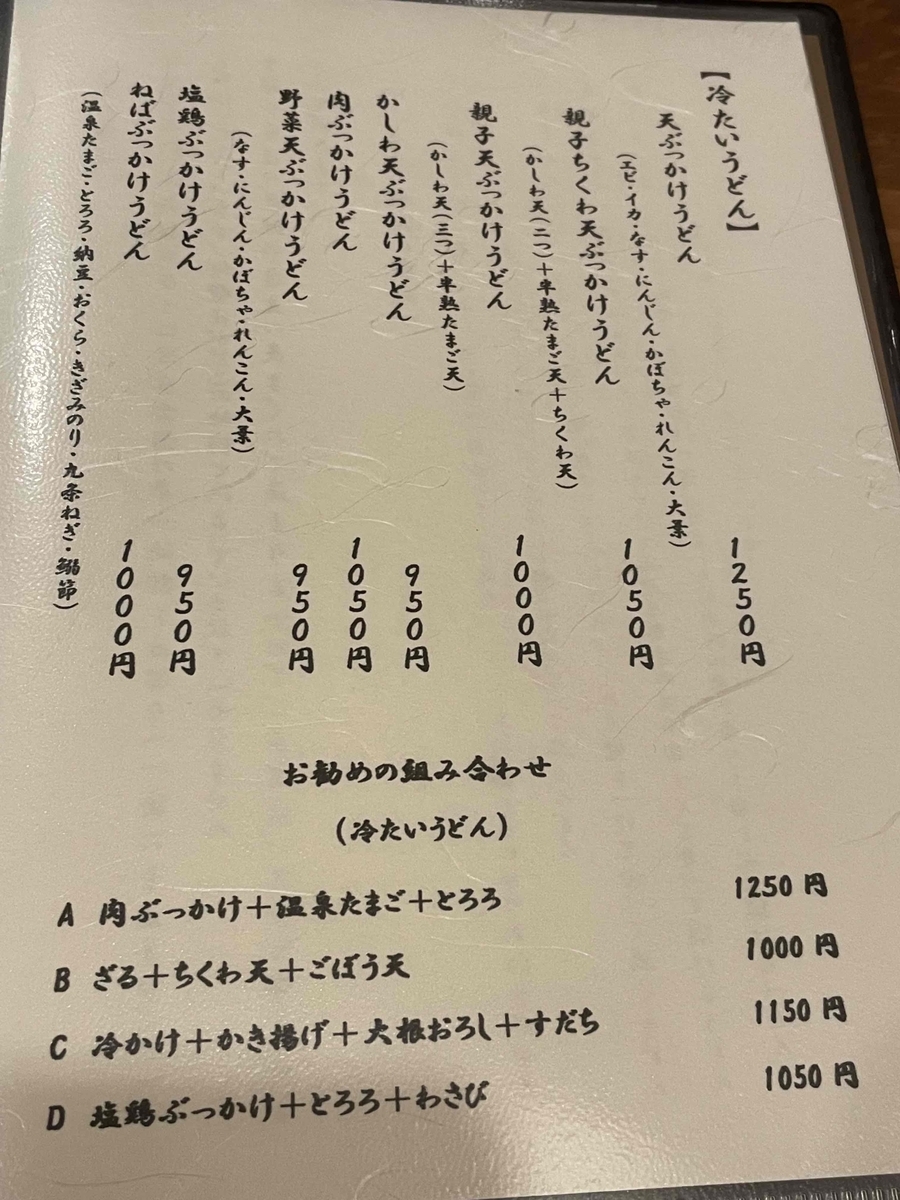 【冷たいうどん】
天ぶっかけうどん 1250円
（エビ・イカ・なす・にんじん・かぼちゃ・れんこん・大葉）
親子ちくわ天ぶっかけうどん 1050円
（かしわ天（二つ）＋半熟たまご天＋ちくわ天）
親子天ぶっかけうどん 1000円
（かしわ天（三つ）＋半熟たまご天）
かしわ天ぶっかけうどん 950円
肉ぶっかけうどん 1050円
野菜天ぶっかけうどん 950円
（なす・にんじん・かぼちゃ・れんこん・大葉）
塩鶏ぶっかけうどん 950円
ねばぶっかけうどん 1000円
（温泉たまご・とろろ・納豆・おくら・きざみのり・九条ねぎ・鰯節）
お勧めの組み合わせ
（冷たいうどん）
A 肉ぶっかけ＋温泉たまご＋とろろ 1250円
B ざる＋ちくわ天＋ごぼう天 1000円
C 冷かけ＋かき揚げ＋大根おろし＋すだち 1150円
D 塩鶏ぶっかけ＋とろろ＋わさび 1050円